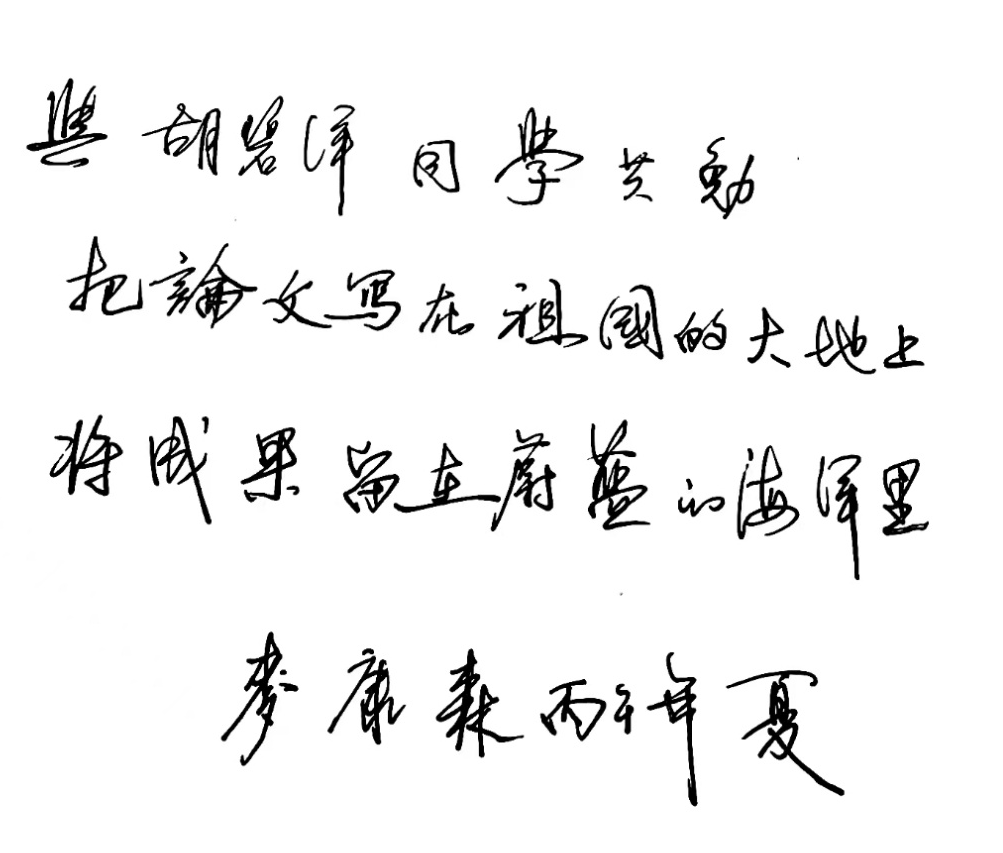 與胡碧洋同學共勉
把論文写在祖國的大地上
将成果留在蔚藍的海洋里
麥康森丙午年夏